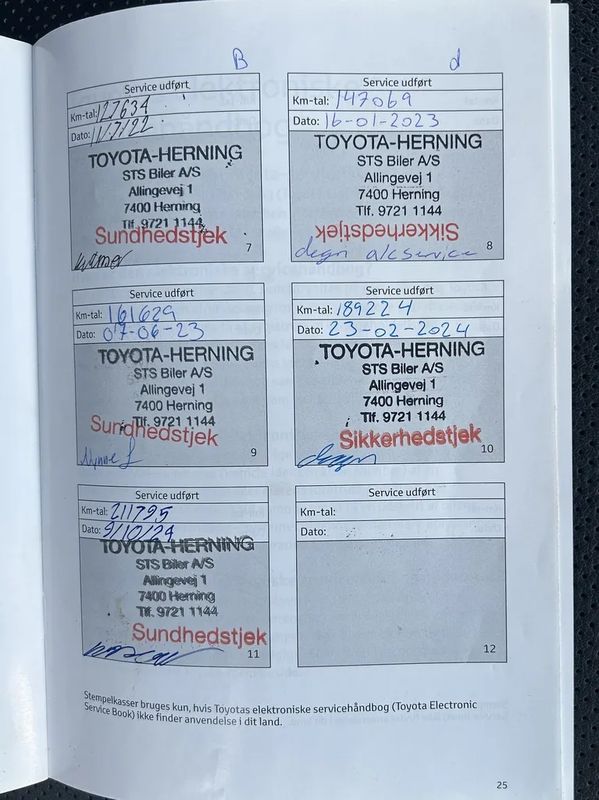 B
Service udført
Km-tal: 127634
Dato: 11/7/22
TOYOTA-HERNING
STS Biler A/S
Allingevej 1
7400 Herning
Tlf. 9721 1144
Sundhedstjek
7
d
Service udført
Km-tal: 147069
Dato: 16-01-2023
TOYOTA-HERNING
STS Biler A/S
Allingevej 1
7400 Herning
Tlf. 9721 1144
Sikkerhedstjek
8
degn a/c service
Service udført
Km-tal: 161629
Dato: 07-06-23
TOYOTA-HERNING
STS Biler A/S
Allingevej 1
7400 Herning
Tlf. 9721 1144
Sundhedstjek
9
Service udført
Km-tal: 189224
Dato: 23-02-2024
TOYOTA-HERNING
STS Biler A/S
Allingevej 1
7400 Herning
Tlf. 9721 1144
Sikkerhedstjek
degn
10
Service udført
Km-tal: 211795
Dato: 9/10/24
TOYOTA-HERNING
STS Biler A/S
Allingevej 1
7400 Herning
Tlf. 9721 1144
Sundhedstjek
11
Service udført
Km-tal:
Dato:
12
Stempelkasser bruges kun, hvis Toyotas elektroniske servicehåndbog (Toyota Electronic
Service Book) ikke finder anvendelse i dit land.
25